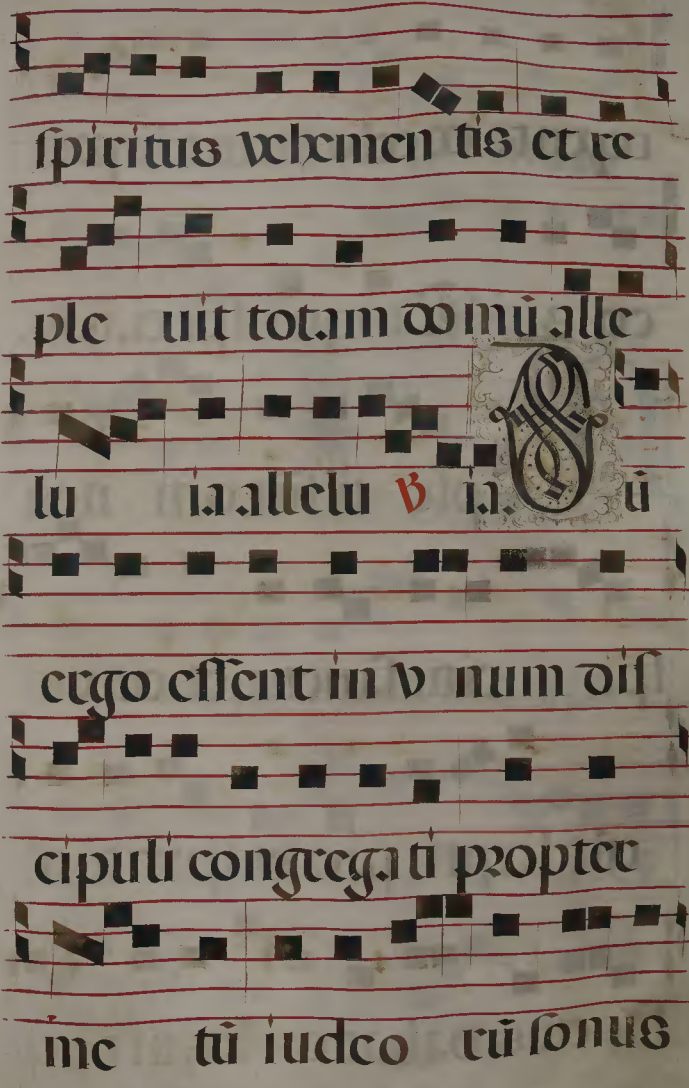 spiritus vehemen tis et re
ple uit totam domū alle
lu ia allelu ℣ ia. Dū
ergo essent in v num dis
cipuli congrega ti propter
me tū iudeo rū sonus